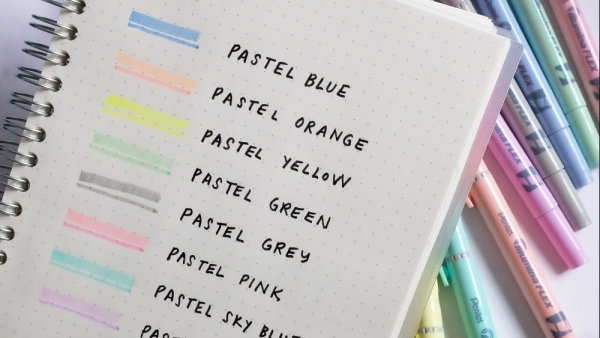 PASTEL BLUE
PASTEL ORANGE
PASTEL YELLOW
PASTEL GREEN
PASTEL GREY
PASTEL PINK
PASTEL SKY BLUE
PASTEL
Pentel illumina FLEX
Pentel